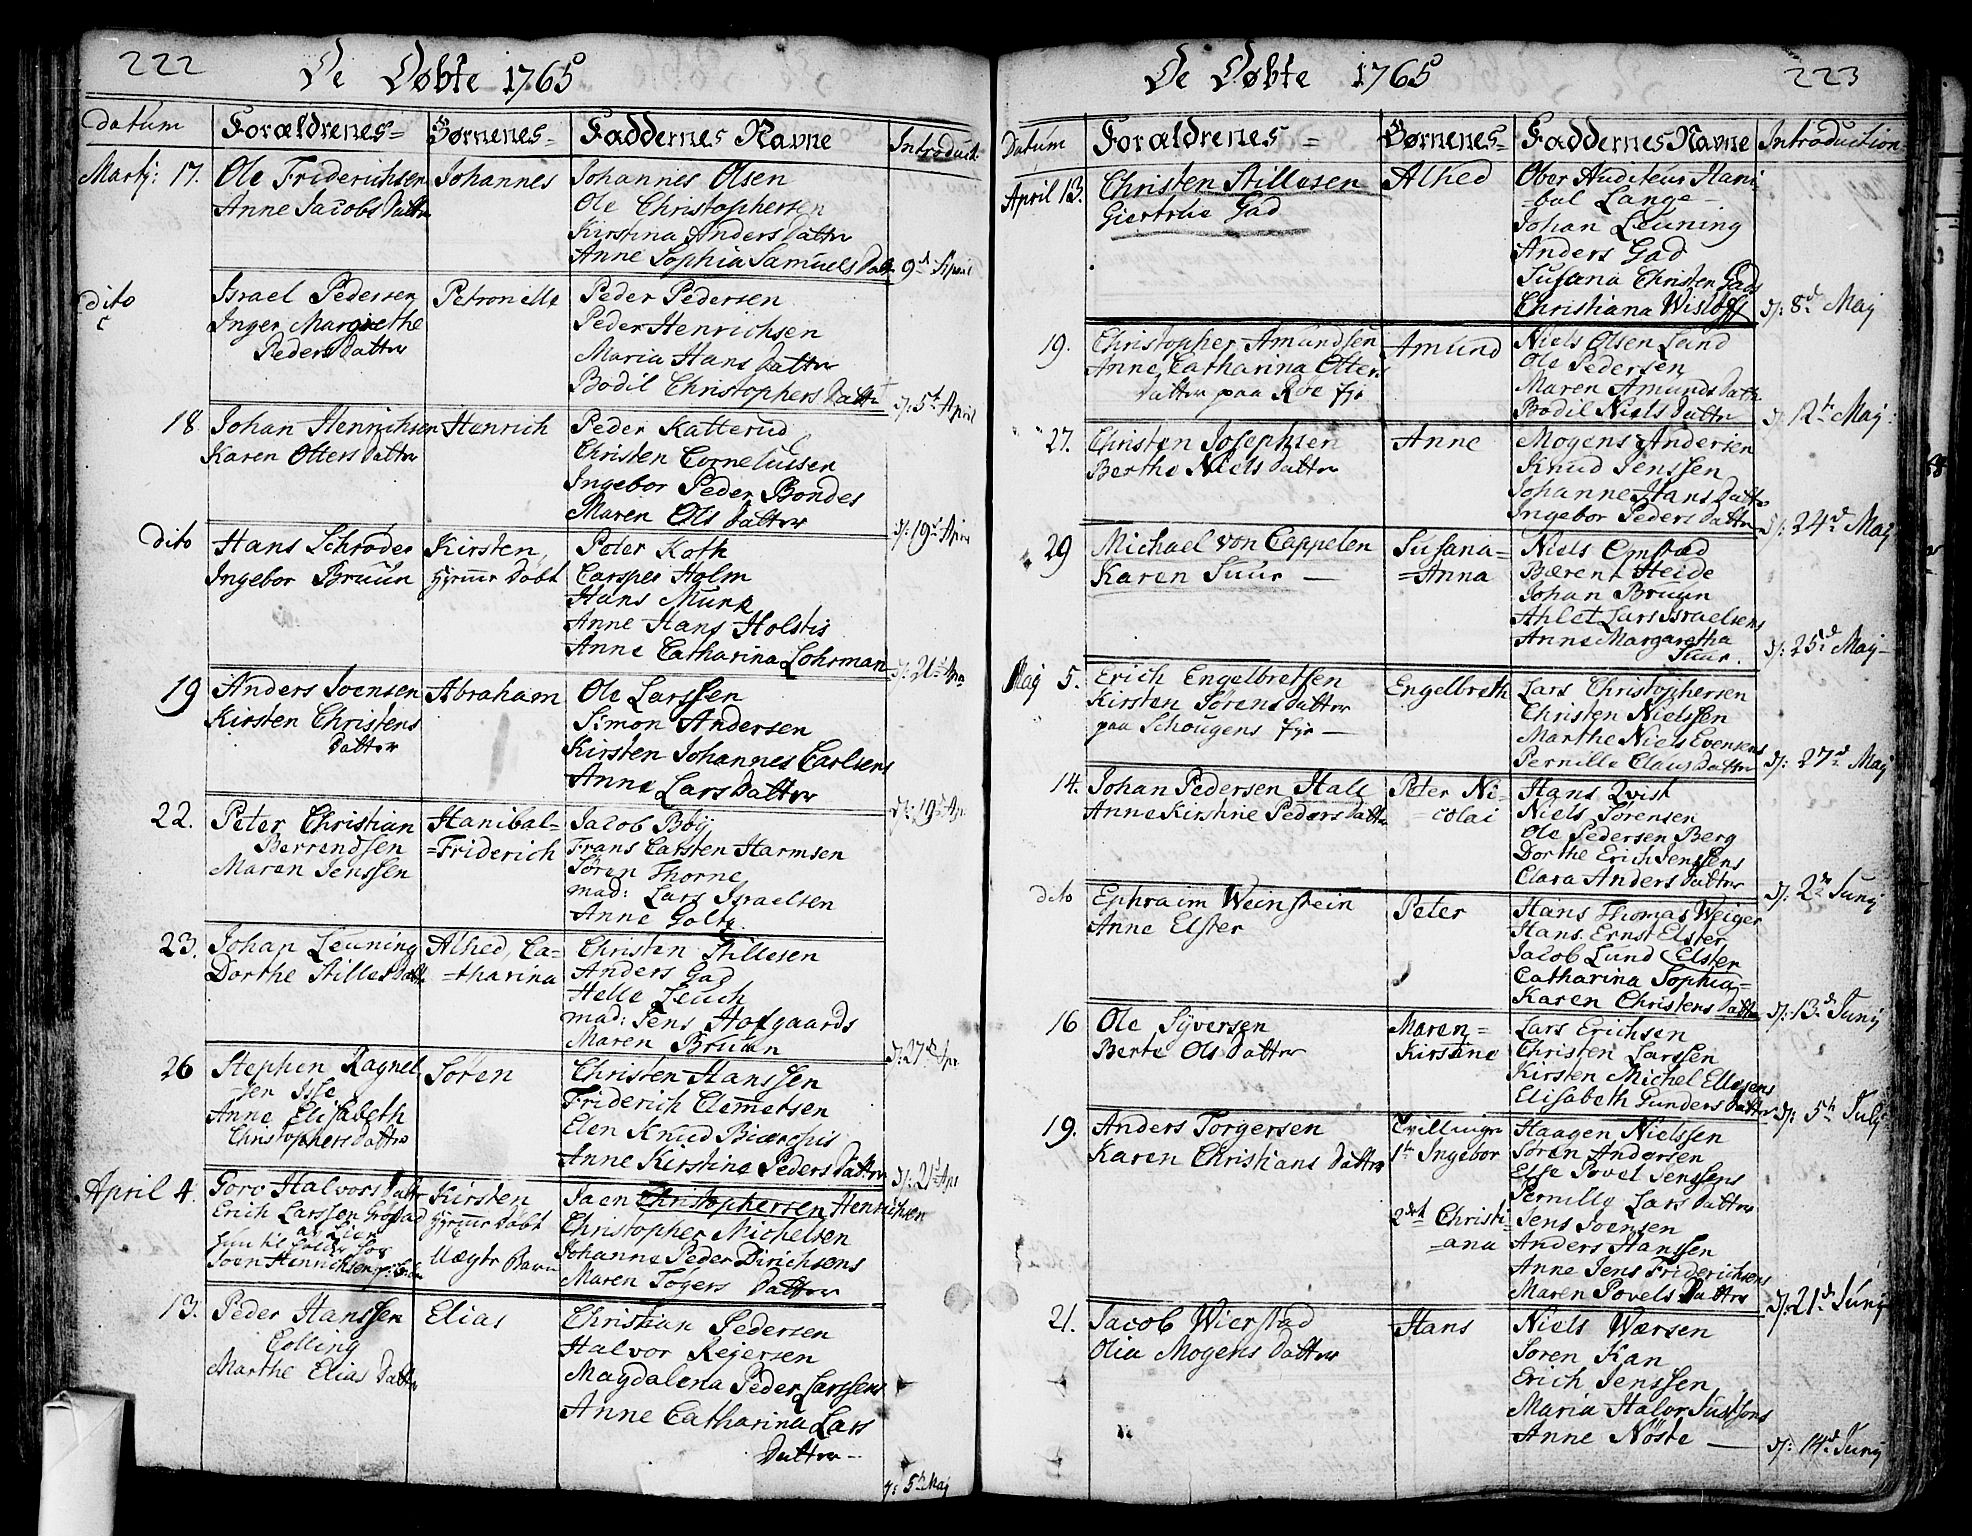 222
De Døbte 1765
Datum
Forældrenes=
Børnenes=
Faddernes Navne
Introduct:
Martij: 17.
Ole Friderichsen
Anne Jacobs Datter
Johannes
Johannes Olsen
Ole Christophersen
Kirstina Anders Datter
Anne Sophia Samuels Datt
9d April
dito
Israel Pedersen
Inger Margrethe
Peders Datter
Petronelle
Peder Pedersen
Peder Henrichsen
Maria Hans Datter
Bodil Christophers Datter
5t April
18.
Johan Henrichsen
Karen Otters Datter
Henrich
Peder Katterud
Christen Corneliusen
Ingebor Peder Bondes
Maren Ols Datter
19d Apri
Dito
Hans Schrøder
Ingebor Bruün
Kirsten,
Hjemme Døbt
Peter Koth
Carsper Holm
Hans Munk
Anne Hans Holstis
Anne Catharina Lohrman
21d Apr
19
Anders Joensen
Kirsten Christens
Datter
Abraham
Ole Larssen
Simon Andersen
Kirsten Johannes Carlsens
Anne Lars Datter
19d Ap:
22.
Peter Christian
Berrendsen
Maren Jenssen
Hanibal=
=Friderich
Jacob Böÿ
Frans Carsten Harmsen
Søren Thorne
mad: Lars Israelsen
Anne Goltz
23.
Johan Leuning
Dorthe Stilles Datt
Alhed, Ca=
=tharina
Christen Stillesen
Anders Gad
Helle Leuch
mad: Jens Hofgaards
Maren Bruun
27d Apr
26
Stephen Ragnel
sen Isse
Anne Elisabeth
Christophers Datter
Søren
Christen Hanssen
Friderich Clemetsen
Elen Knud
Anne Kirstina Peders Datter
21d Apr
April 4.
Goro Halvors Datter
Erich Larssen
af Lier
Joen Henrichsen
Kirsten
Hjemme Døbt
Uægte Barn
Jaen Christophersen Henrichsen
Christopher Michelsen
Johanne Peder Dirichsens
Maren Togers Datter
13.
Peder Hanssen
Colling
Marthe Elias Datter
Elias
Christian Pedersen
Halvor Rejersen
Magdalena Peder Larssens
Anne Catharina Lars
Datter—
5th Maj
De Døbte 1765
223
Datum
Forældrenes=
Børnenes=
Faddernes Navne
Introduction=
April 13.
Christen Stillesen
Giertrue Gad
Alhed
Ober Auditeur Hani
=bal Lange—
Johan Leuning
Anders Gad
Susana Christen Gads
Christiana Wisløff
8d Maj
19.
Christopher Amundsen
Anne Catharina Otters
Datter paa Röe fjr
Amund
Niels Olsen Lund
Ole Pedersen
Maren Amunds Datter
Bodil Niels Datter
12te Maj
27.
Christen Josephsen
Berthe Niels Datter
Anne
Mogens Andersen
Knud Jenssen
Johanne Hans Datter
Ingebor Peders Datter
24d Maj
29
Michael von Cappelen
Karen Tuur —
Susana=
=Anna
Niels Omsted
Bærent Heide
Johan Bruun
Ahlet Lars Israelsens
Anne Margaretha
Tuur.
25d Maj—
Maj 5.
Erich Engelbretsen
Kirsten Sørens Datter
paa Schougens fjr—
Engelbreth
Lars Christophersen
Christen Nielssen
Marthe Niels Evensens
Pernille Claus Datter
27d Maj
14.
Johan Pedersen Hall
Anne Kirstine Peders Datter
Peter Ni=
=colai
Hans Qvist
Niels Sørensen
Ole Pedersen Berg
Dorthe Erich Jenssens
Clara Anders Datter
2den Junij
dito
Ephraim Weinstein
Anne Elster
Peter
Hans Thomas Weiger
Hans Ernst Elster
Jacob Lund Elster
Catharina Sophia=
Karen Christens Datter
13d Junij
16
Ole Syversen
Berte Ols Datter
Maren=
Kirstine
Lars Erichsen
Christen Larssen
Kirsten Michel Ellesens
Elisabeth Gunders Datter
5th Julij
19.
Anders Torgersen
Karen Christians Datter
Tvillinger
1te Ingebor
2det Christi=
=ana
Haagen Nielssen
Søren Andersen
Else Povel Jenssens
Pernille Lars Datter
Jens Joensen
Anders Hanssen
Anne Jens Friderichsens
Maren Povels Datter
21d Junij
21.
Jacob Wierstad
Olia Mogens Datter
Hans
Niels Wærsen
Søren Kan
Erich Jenssen
Maria Halvor
Anne Nöste —
14d Junij